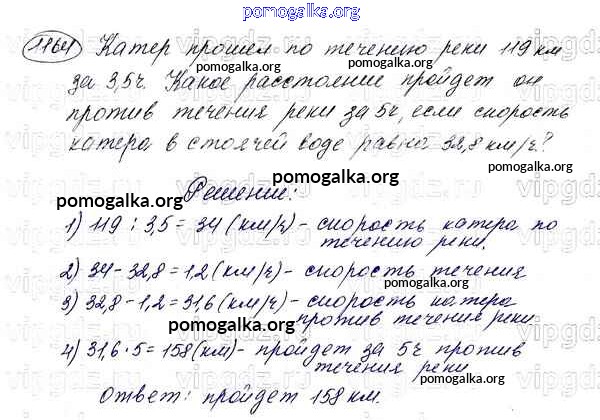 pomogalka.org
1164 Катер прошел по течению реки 119 км
pomogalka.org pomogalka.org
за 3,5ч. Какое расстояние пройдет он
против течения реки за 5ч, если скорость
катера в стоячей воде равна 32,8 км/ч?
pomogalka.org
pomogalka.org
Решение:
1) 119 : 3,5 = 34 (км/ч) - скорость катера по
течению реки.
pomogalka.org pomogalka.org
2) 34 - 32,8 = 1,2 (км/ч) - скорость течения
3) 32,8 - 1,2 = 31,6 (км/ч) - скорость катера
против течения реки
pomogalka.org pomogalka.org
4) 31,6 · 5 = 158 (км) - пройдет за 5ч против
течения реки
pomogalka.org
Ответ: пройдет 158 км.
pomogalka.org